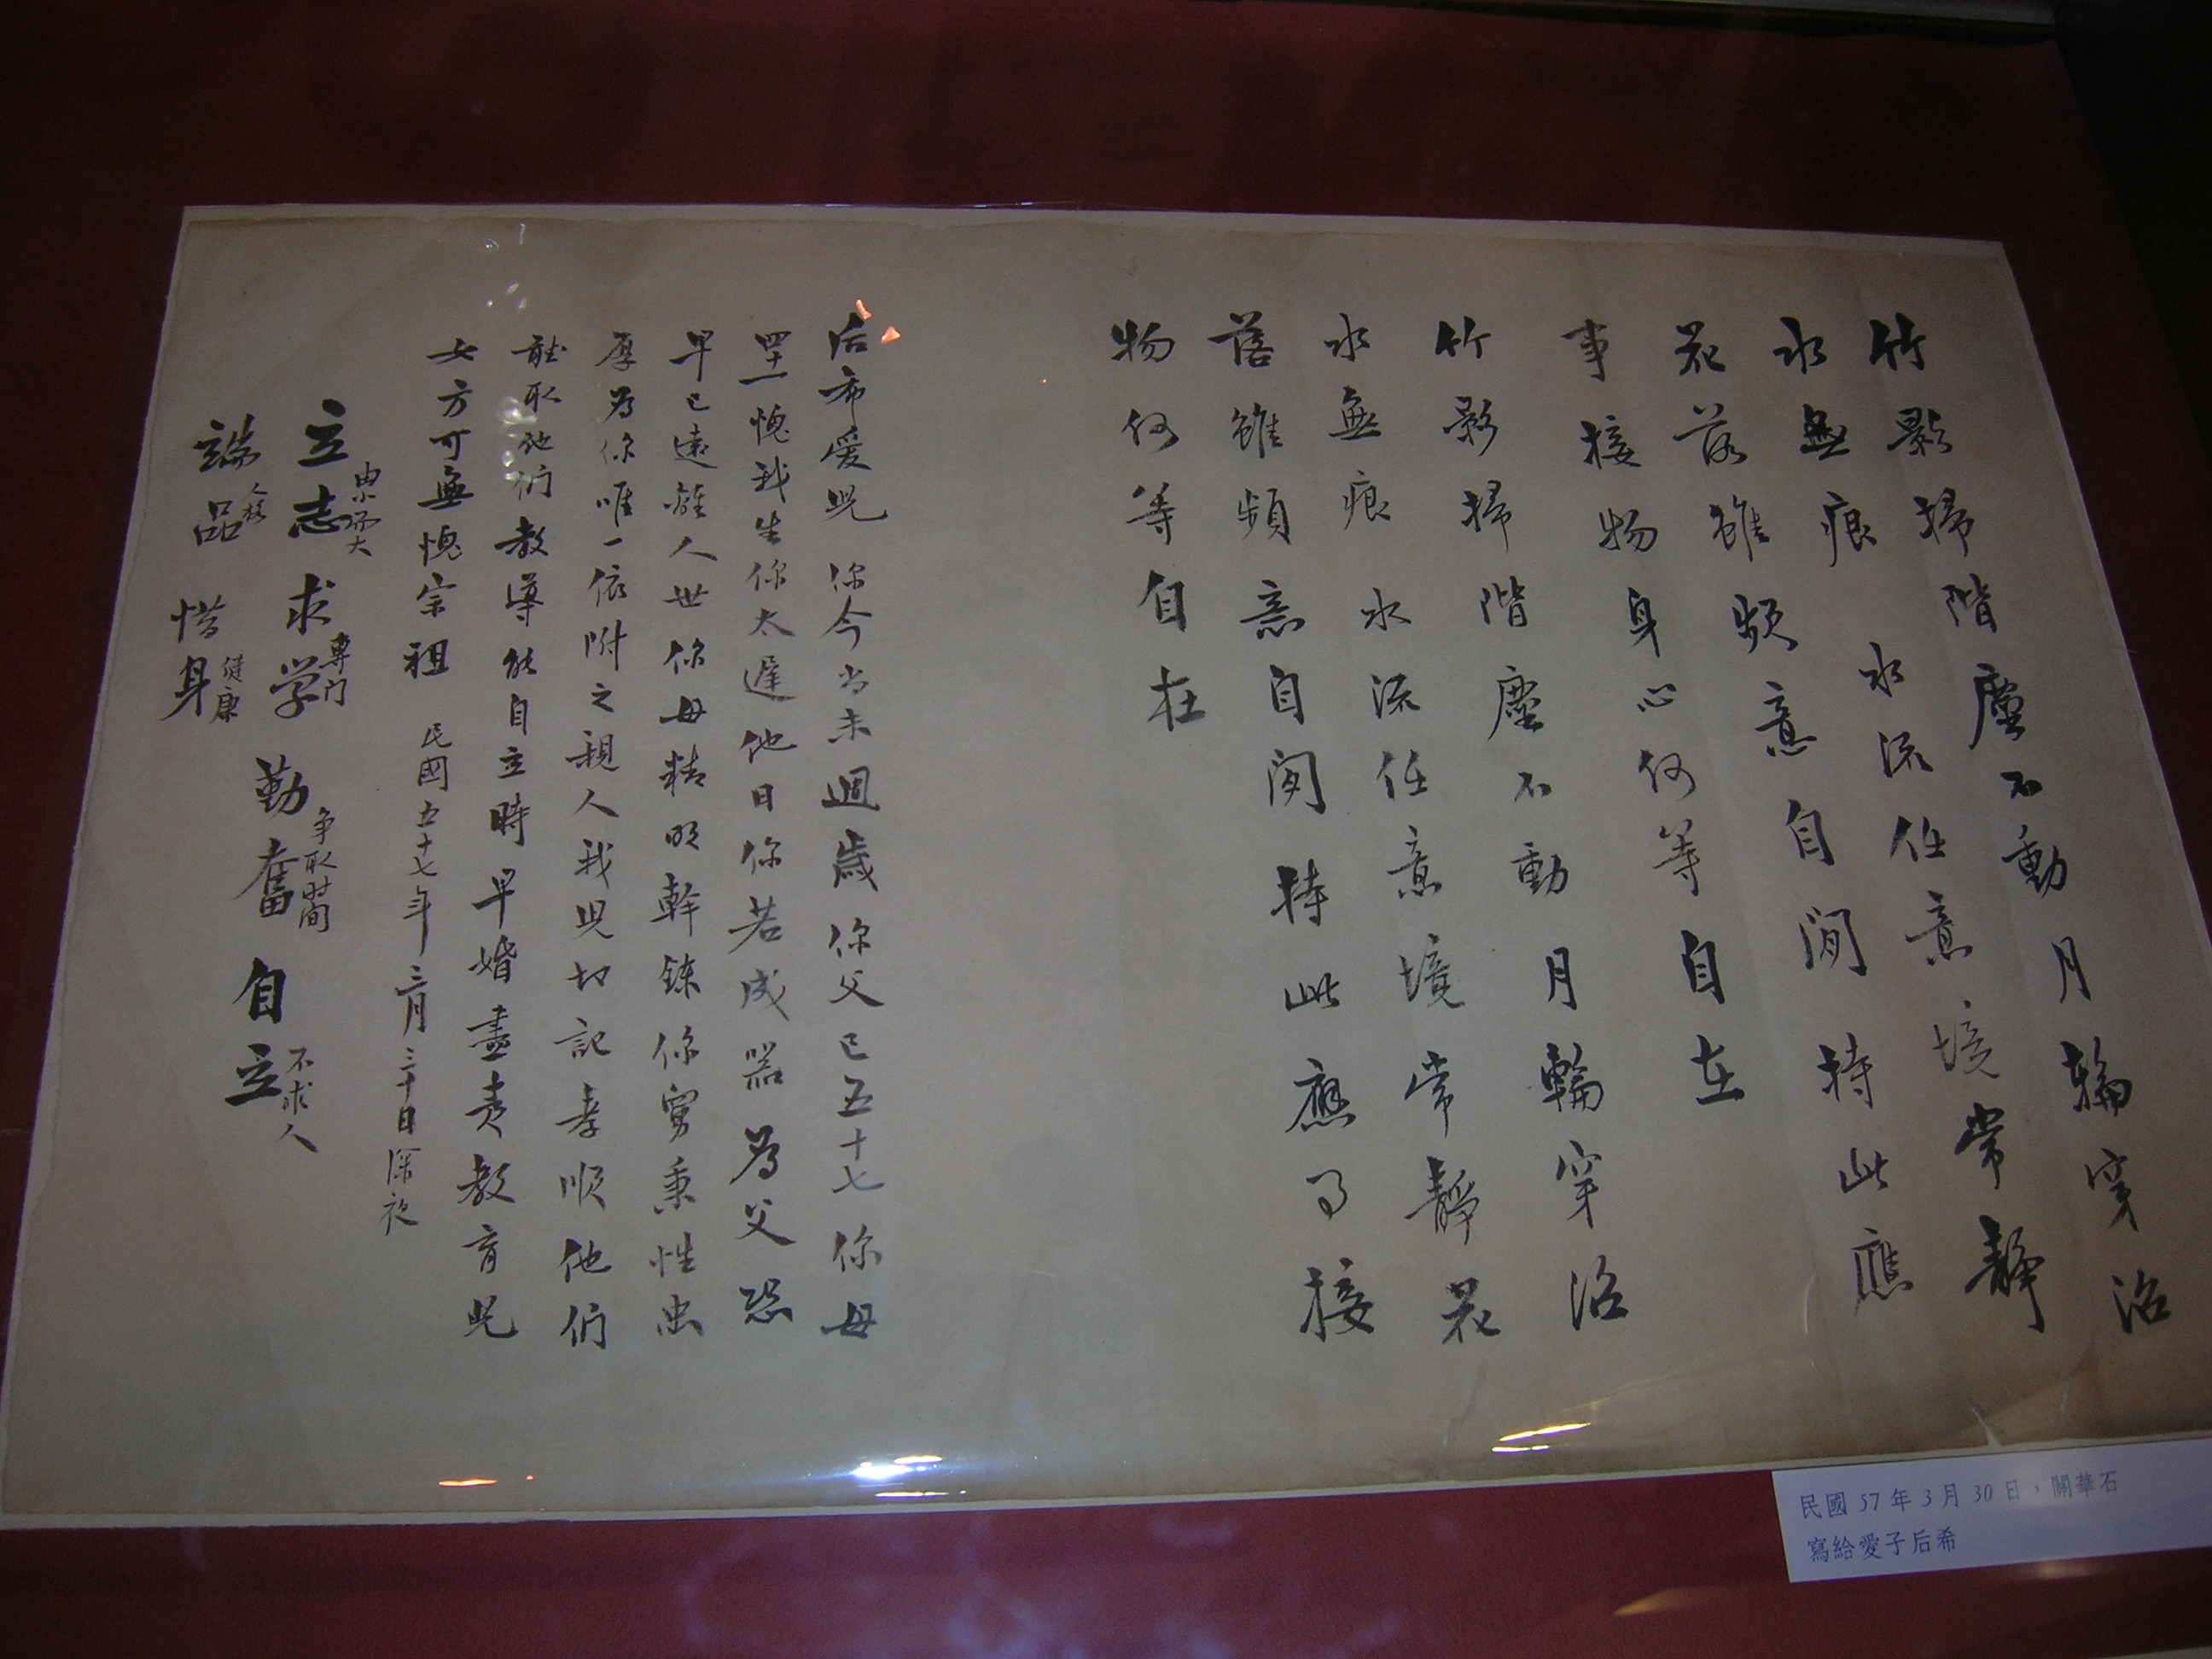 竹影掃階塵不動月輪穿沼
水無痕 水流任意境常靜
花落雖頻意自閒 持此應
事接物身心何等自在
竹影掃階塵不動月輪穿沼
水無痕 水流任意境常靜花
落雖頻意自閑 持此應事接
物何等自在
后希愛兒 你今尚未週歲你父已五十七你母
四十一愧我生你太遲他日你若成器為父恐
早已遠離人世你母精明幹鍊你舅秉性忠
厚為你唯一依附之親人我兒切記孝順他們
聽取他們教導能自立時早婚盡責教育兒
女方可無愧宗祖 民國五十七年三月三十日深夜
立志 由小而大 求学 專门 勤奮 争取时间 自立 不求人
端品 人格 惜身 健康
民國 57 年 3 月 30 日，關華石
寫給愛子后希